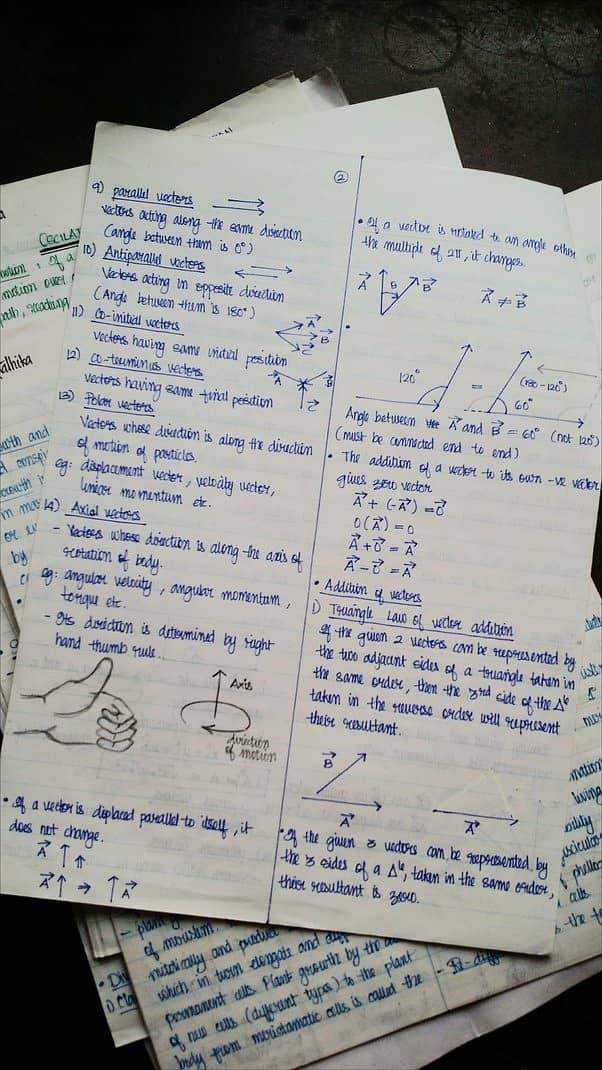 ②
9) parallel vectors
vectors acting along the same direction
(angle between them is 0°)
10) Antiparallel vectors
Vectors acting in opposite direction
(Angle between them is 180°)
11) Co-initial vectors
Vectors having same initial position
A B C
12) co-terminus vectors
vectors having same final position
A B C
13) Polar vectors
Vectors whose direction is along the direction
of motion of particles.
eg: displacement vector, velocity vector,
linear momentum etc.
14) Axial vectors
- Vectors whose direction is along the axis of
rotation of body.
eg: angular velocity, angular momentum,
torque etc.
- Its direction is determined by right
hand thumb rule.
Axis
direction
of motion
• If a vector is displaced parallel to itself, it
does not change.
A ↑ ⇑
A ↑ → ↑ A
• If a vector is rotated to an angle other
the multiple of 2π, it changes.
A θ B A ≠ B
120° = (180-120°)
60°
Angle between A and B = 60° (not 120°)
(must be connected end to end)
• The addition of a vector to its own -ve vector
gives zero vector
A + (-A) = 0
0(A) = 0
A + 0 = A
A - 0 = A
• Addition of vectors
1) Triangle Law of vector addition
If the given 2 vectors can be represented by
the two adjacent sides of a triangle taken in
the same order, then the 3rd side of the Δle
taken in the reverse order will represent
their resultant.
B
A A
• If the given 3 vectors can be represented by
the 3 sides of a Δle, taken in the same order,
their resultant is zero.
of meristem.
which in turn elongate and
permanent cells. Plant growth by the
of new cells (different types) to the plant
body from meristamatic cells is called the